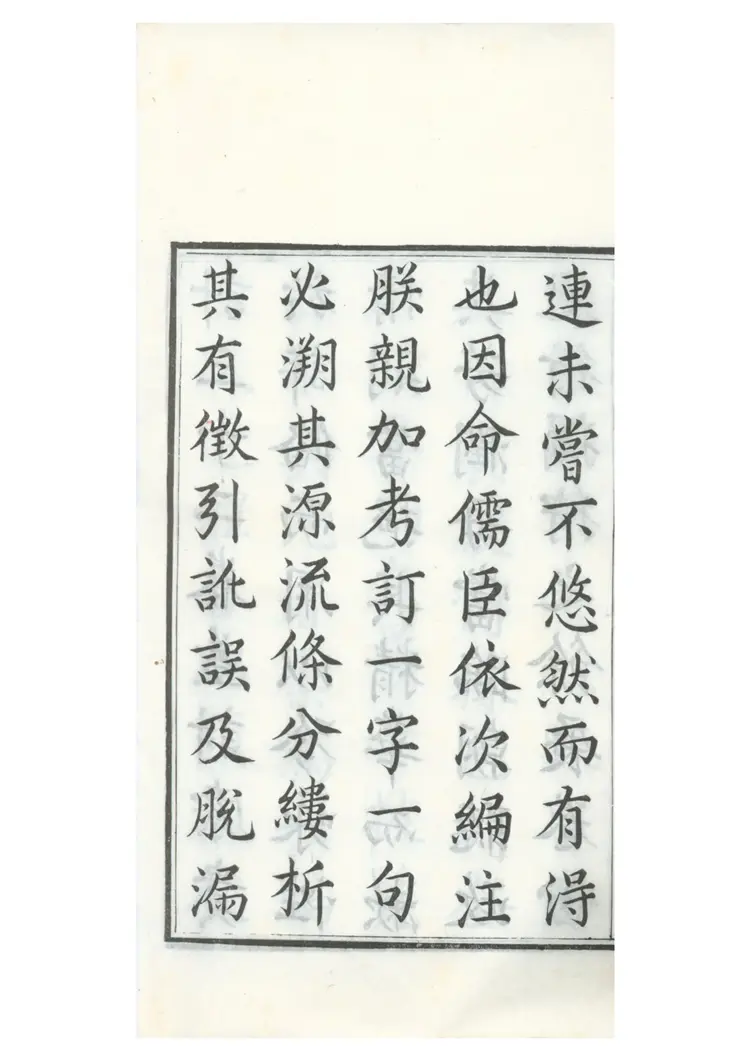 連未嘗不悠然而有得
也因命儒臣依次編注
朕親加考訂一字一句
必溯其源流條分縷析
其有徵引訛誤及脫漏